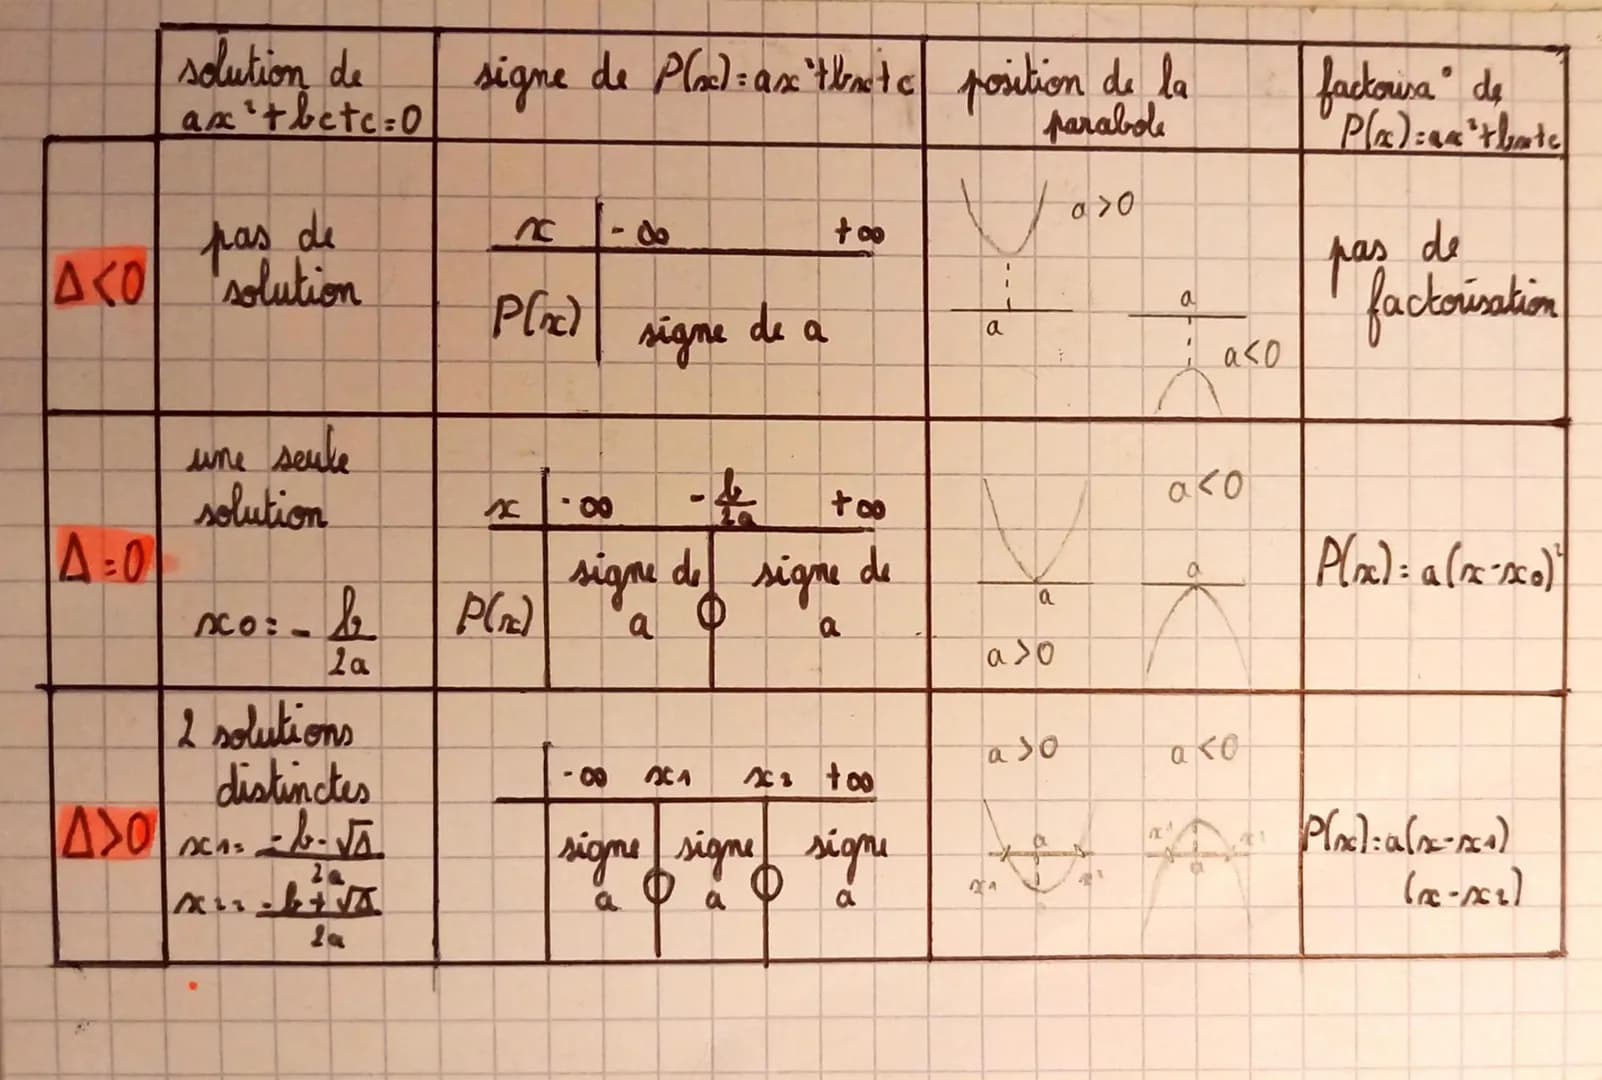 solution de
ax²+bc+c=0
signe de P(x)=ax²+bx+c
position de la
parabole
factorisa° de
P(x)=ax²+bx+c
Δ<0
pas de
solution
x -∞ +∞
P(x) signe de a
a>0
a
a
a<0
pas de
factorisation
Δ=0
une seule
solution
x0=-b/2a
x -∞ -b/2a +∞
signe de signe de
P(x) a 0 a
a<0
a
a
a>0
P(x)=a(x-x0)²
Δ>0
2 solutions
distinctes
x1=-b-√Δ/2a
x2=-b+√Δ/2a
-∞ x1 x2 +∞
signe signe signe
a 0 a 0 a
a>0 a<0
a
x1 x2
a
P(x)=a(x-x1)
(x-x2)